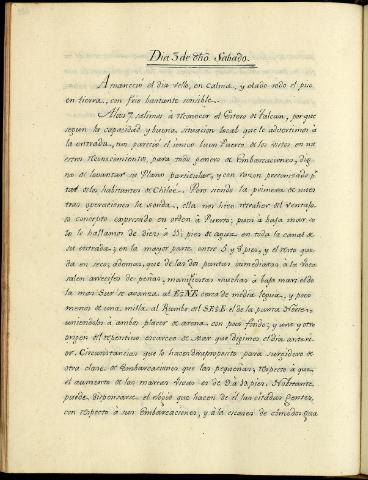 Dia 3 de dho. Sabado.
Amaneció el dia bello, en calma, y elado todo el piso
en tierra, con frio bastante sensible.
A las 7 salimos á reconocer el Estero de Palcan, porque
segun la capacidad y buena situacion local que le advertimos á
la entrada, nos pareció el unico buen Puerto de los vistos en nu
estros reconocimientos, para todo genero de Embarcaciones, dig
no de levantar su Plano particular, y con razon preconisado p.r
tal de los habitantes de Chiloé. Pero siendo la primera de nues
tras operaciones la sonda, ella nos hizo retraher del ventajo
so concepto expresado en orden á Puerto; pues á baja mar so
lo le hallamos de diez á 15 pies de agua en toda la canal de
su entrada; en la mayor parte entre 5 y 8 pies, y el resto que
da en seco, ademas, que de las dos puntas inmediatas á la boca
salen arrecifes de peñas, manifiestas muchas á baja mar: el de
la mas Sur se avanza al ESNE cerca de media legua, y poco
menos de una milla al rumbo del SESE el de la punta Norte;
uniendolos á ambos placer de arena con poco fondo; y uno y otro
origen del repentino escarceo de Mar que digimos el dia anteri
or. Circunstancias que lo hacen desproposito para surgidero de
otra clase de Embarcaciones que las pequeñas; respecto á que
el aumento de las mareas vivas es de 9 á 10 pies. No obstante
puede dispensarse el elogio que hacen de él las citadas gentes,
con respecto á sus Embarcaciones, y á la escases de cómodos pa